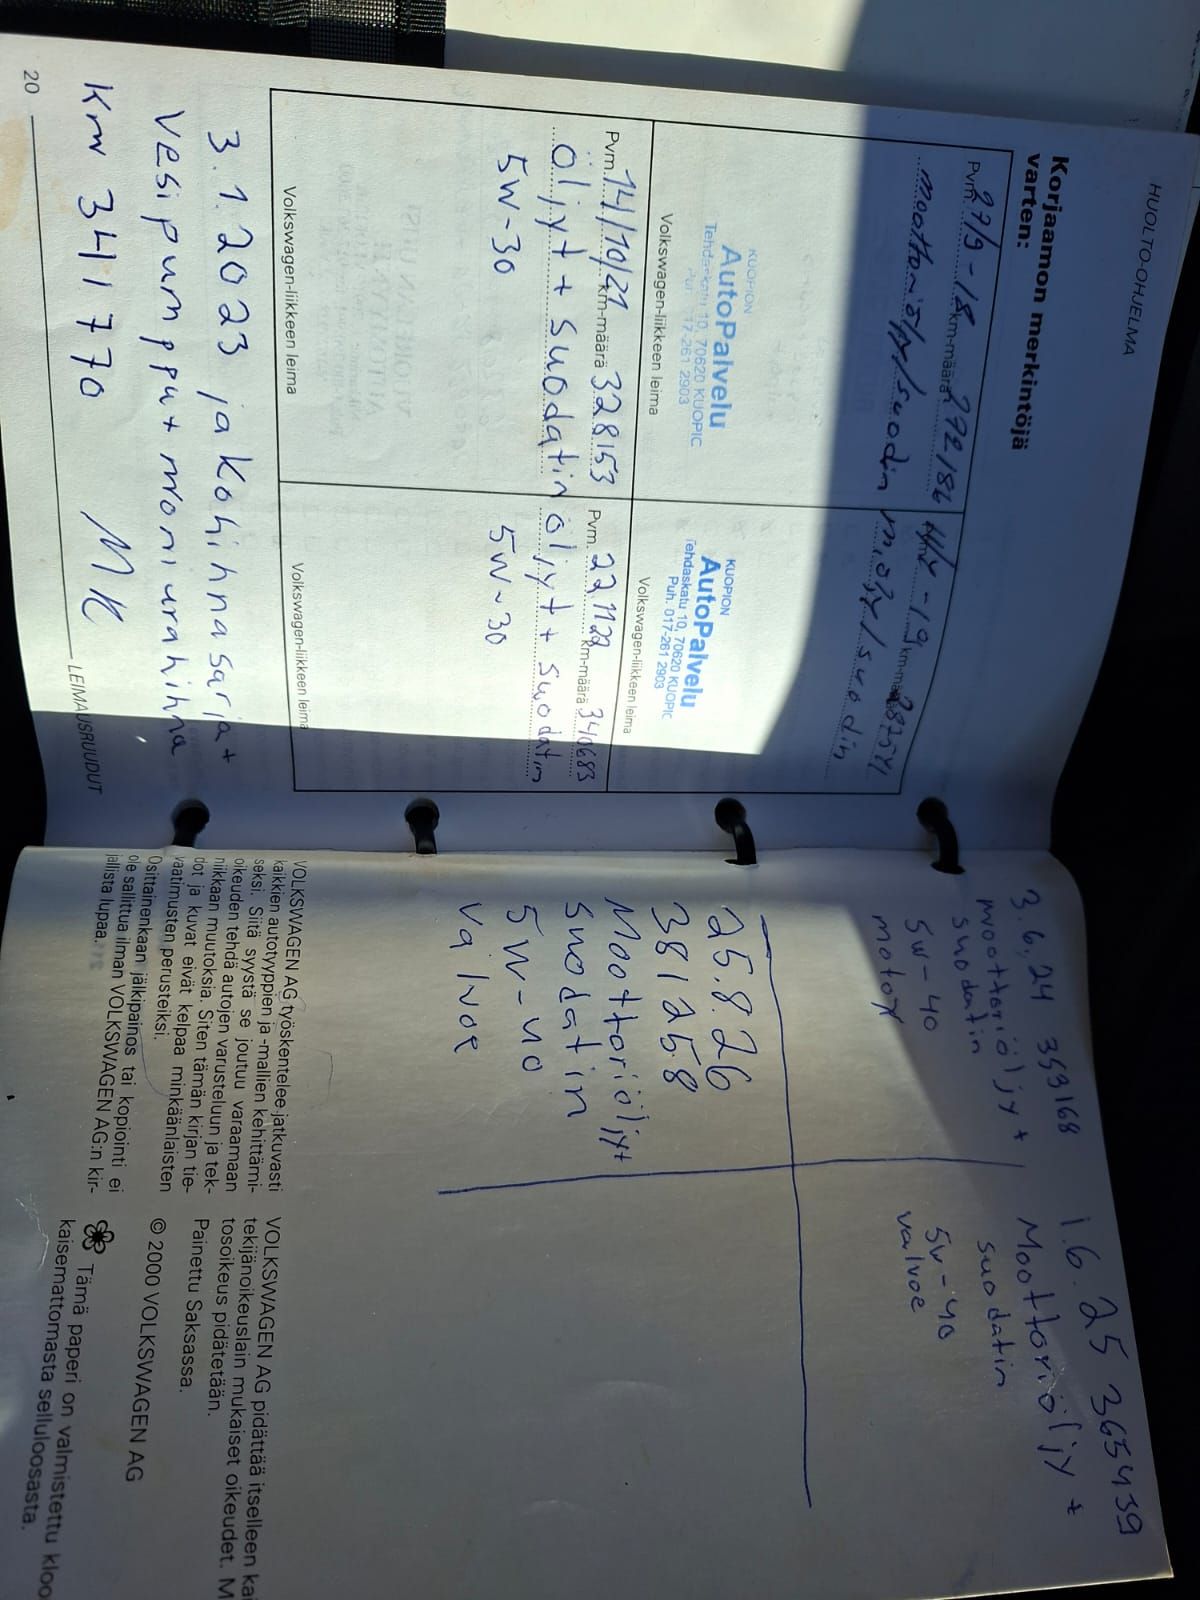 HUOLTO-OHJELMA
Korjaamon merkintöjä
varten:
Pvm. 27/9-18 km-määrä 272186
moottoriöljy/suodin
KUOPION
AutoPalvelu
Tehdaskatu 10, 70620 KUOPIO
Puh. 017-261 2903
Volkswagen-liikkeen leima
-19 km-määrä
m.öljy/suodin
KUOPION
AutoPalvelu
Tehdaskatu 10, 70620 KUOPIO
Puh. 017-261 2903
Volkswagen-liikkeen leima
Pvm. 14/10/21 km-määrä 328153
öljyt + suodatin
5w-30
Volkswagen-liikkeen leima
Pvm. 221122 km-määrä 340683
öljyt + suodatin
5w-30
Volkswagen-liikkeen leima
3.1.2023 jakohihnasarja +
vesipumppu + moniurahihna
km 341770 MK
20
LEIMAUSRUUDUT
3.6.24 353168
moottoriöljy +
suodatin
5w-40
motox
1.6.25 365439
Moottoriöljy +
suodatin
5w-40
valvoe
25.8.26
381258
Moottoriöljy+
suodatin
5w-40
valvoe
VOLKSWAGEN AG työskentelee jatkuvasti
kaikkien autotyyppien ja -mallien kehittämi-
seksi. Siitä syystä se joutuu varaamaan
oikeuden tehdä autojen varusteluun ja tek-
niikkaan muutoksia. Siten tämän kirjan tie-
dot ja kuvat eivät kelpaa minkäänlaisten
vaatimusten perusteiksi.
Osittainenkaan jälkipainos tai kopiointi ei
ole sallittua ilman VOLKSWAGEN AG:n kir-
jallista lupaa.
VOLKSWAGEN AG pidättää itselleen kai
tekijänoikeuslain mukaiset oikeudet. M
tosoikeus pidätetään.
Painettu Saksassa.
© 2000 VOLKSWAGEN AG
Tämä paperi on valmistettu kloo
kaisemattomasta selluloosasta.